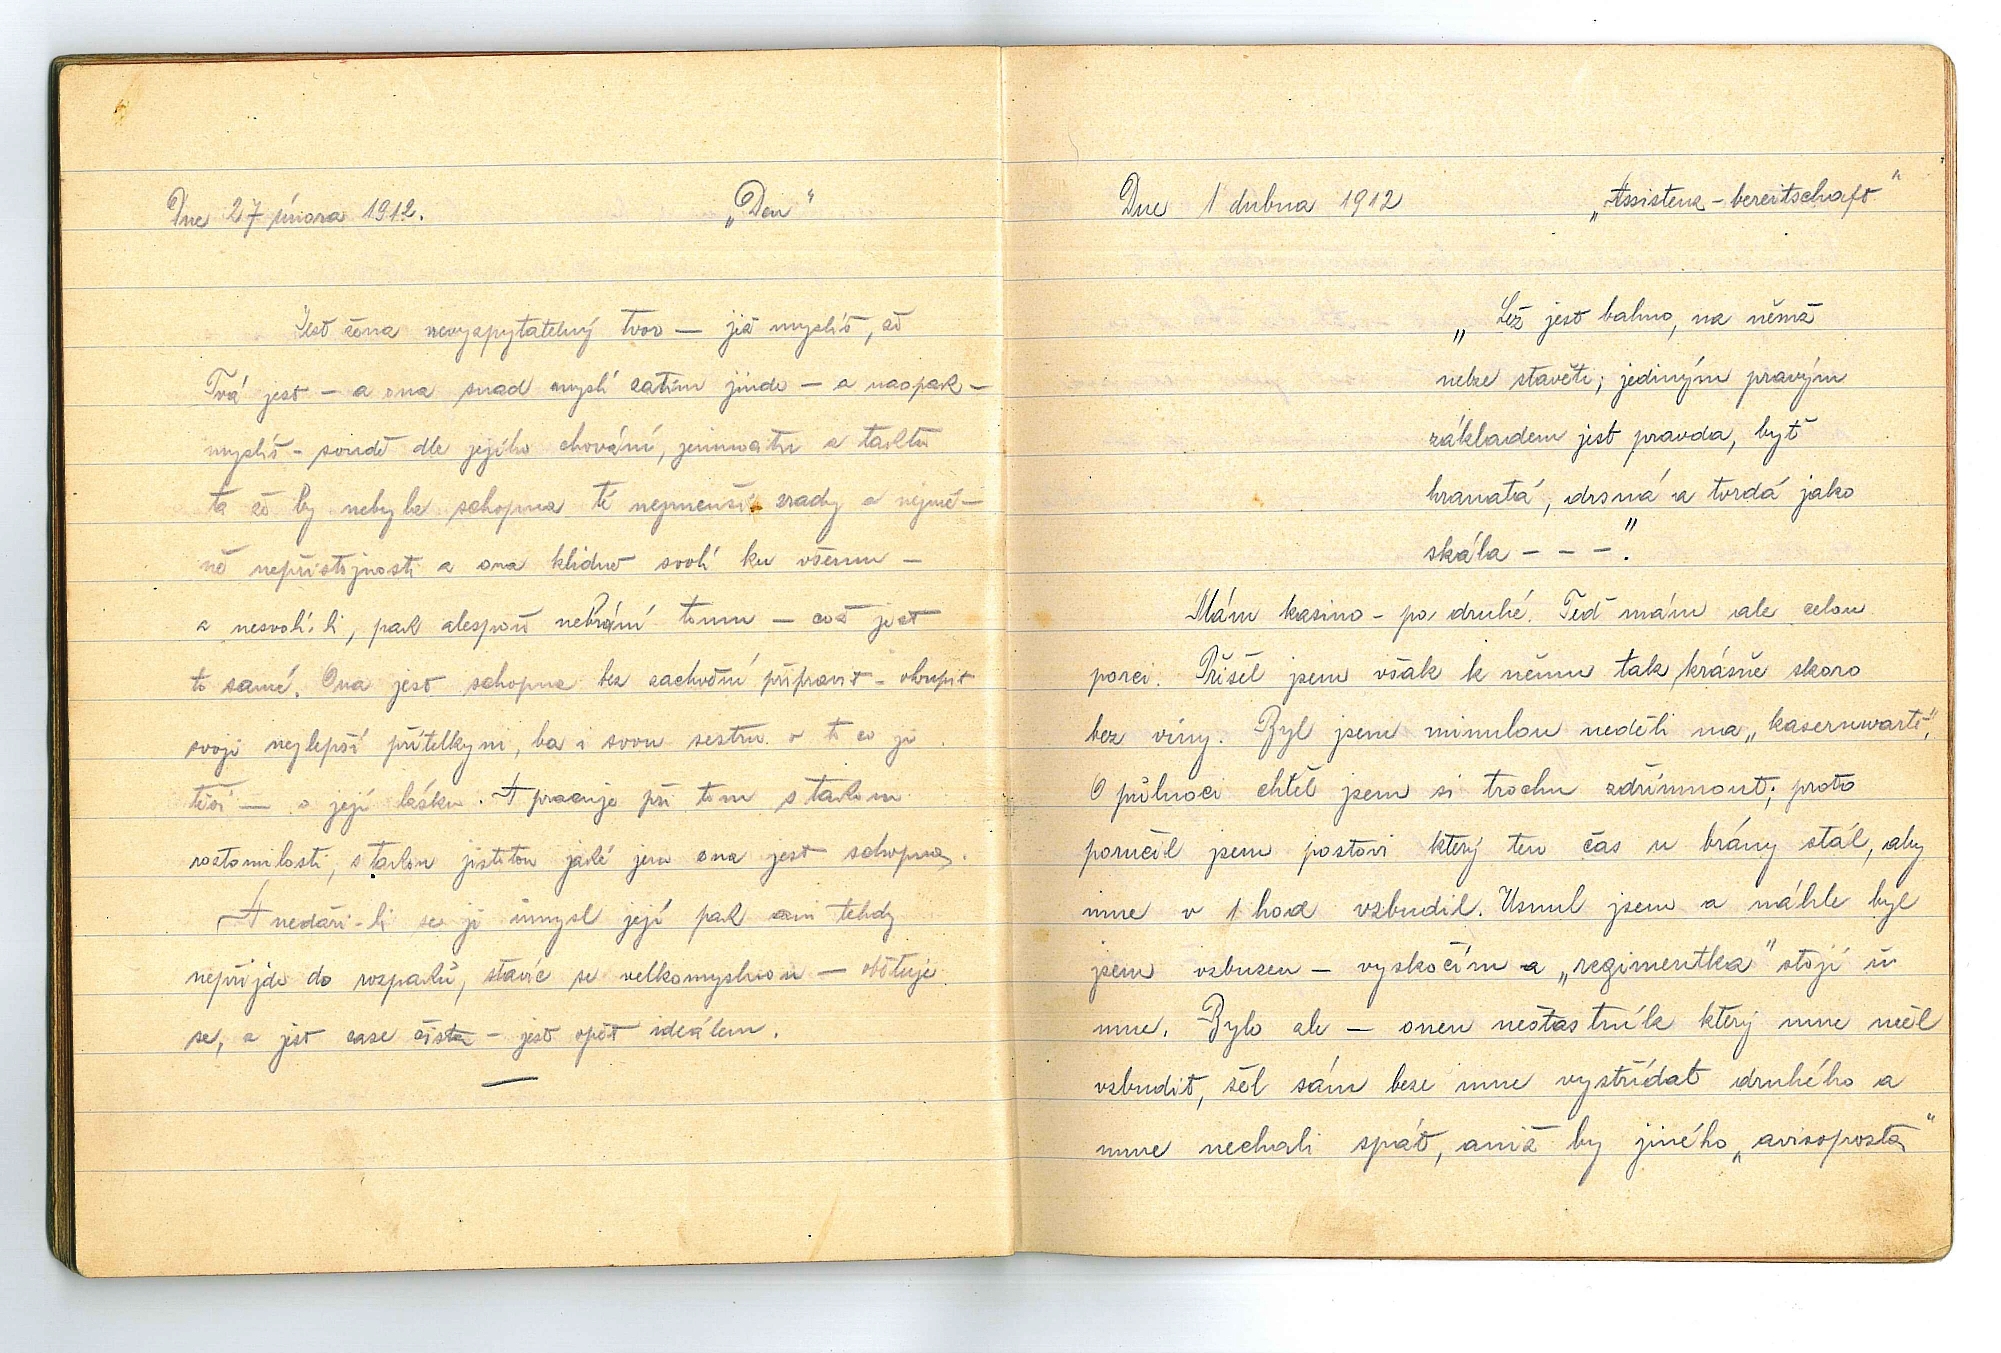 Dne 27 února 1912. „Den“
Jest žena nevyzpytatelný tvor — již myslíš, že
Tvá jest — a ona snad myslí zatím jinde — a naopak —
myslíš - soudě dle jejího chování, jemnocitu a taktu
ta že by nebyla schopna té nejmenší zrady a nejmé-
ně nepřístojnosti a ona klidně svolí ku všemu —
a nesvolí-li, pak alespoň nebrání tomu — což jest
to samé. Ona jest schopna bez zachvění připravit - oloupit
svoji nejlepší přítelkyni, ba i svou sestru o to co ji
těší — o její lásku. A pracuje při tom s takovou
roztomilostí, s takou jistotou jaké jen ona jest schopna.
A nedaří-li se jí úmysl její pak ani tehdy
nepřijde do rozpaků, stavíc se velkomyslnou — obětuje
se, a jest zase čista - jest opět ideálem.
Dne 1 dubna 1912 „Assistenz-bereitschaft“
„Lež jest bahno, na němž
nelze stavěti; jediným pravým
základem jest pravda, byť
hranatá, drsná a tvrdá jako
skála - - -“.
Mám kasino - po druhé. Teď mám ale celou
porci. Přišel jsem však k němu tak krásně skoro
bez viny. Byl jsem minulou neděli na „kasernwartě“,
O půlnoci chtěl jsem si trochu zdřímnout; proto
poručil jsem postovi který ten čas u brány stál, aby
mne v 1 hod vzbudil. Usnul jsem a náhle byl
jsem vzbuzen — vyskočím a „regimentka“ stojí u
mne. Bylo ale — onen nešťastník který mne měl
vzbudit, šel sám beze mne vystřídat druhého a
mne nechali spát, aniž by jiného „avisoposta“